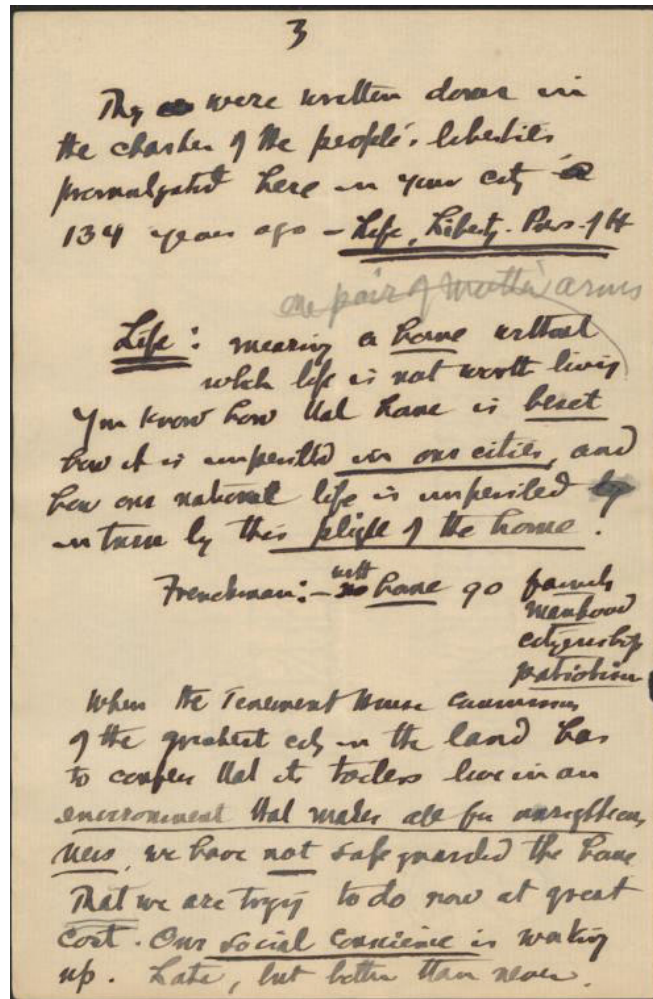 3
They were written down in
the charter of the people's liberties
promulgated here in your city
134 years ago – Life, Liberty. Purs. of H
one pair of mother arms
Life: meaning a home without
which life is not worth living
You know how that home is beset
how it is imperilled in our cities, and
how our national life is imperiled
in turn by this plight of the home.
Frenchman: – with home go family
manhood
citizenship
patriotism
When the Tenement House Commission
of the greatest city in the land has
to confess that its toilers live in an
environment that makes all for unrighteous
ness, we have not safeguarded the home
That we are trying to do now at great
cost. Our social conscience is waking
up. Late, but better than never.